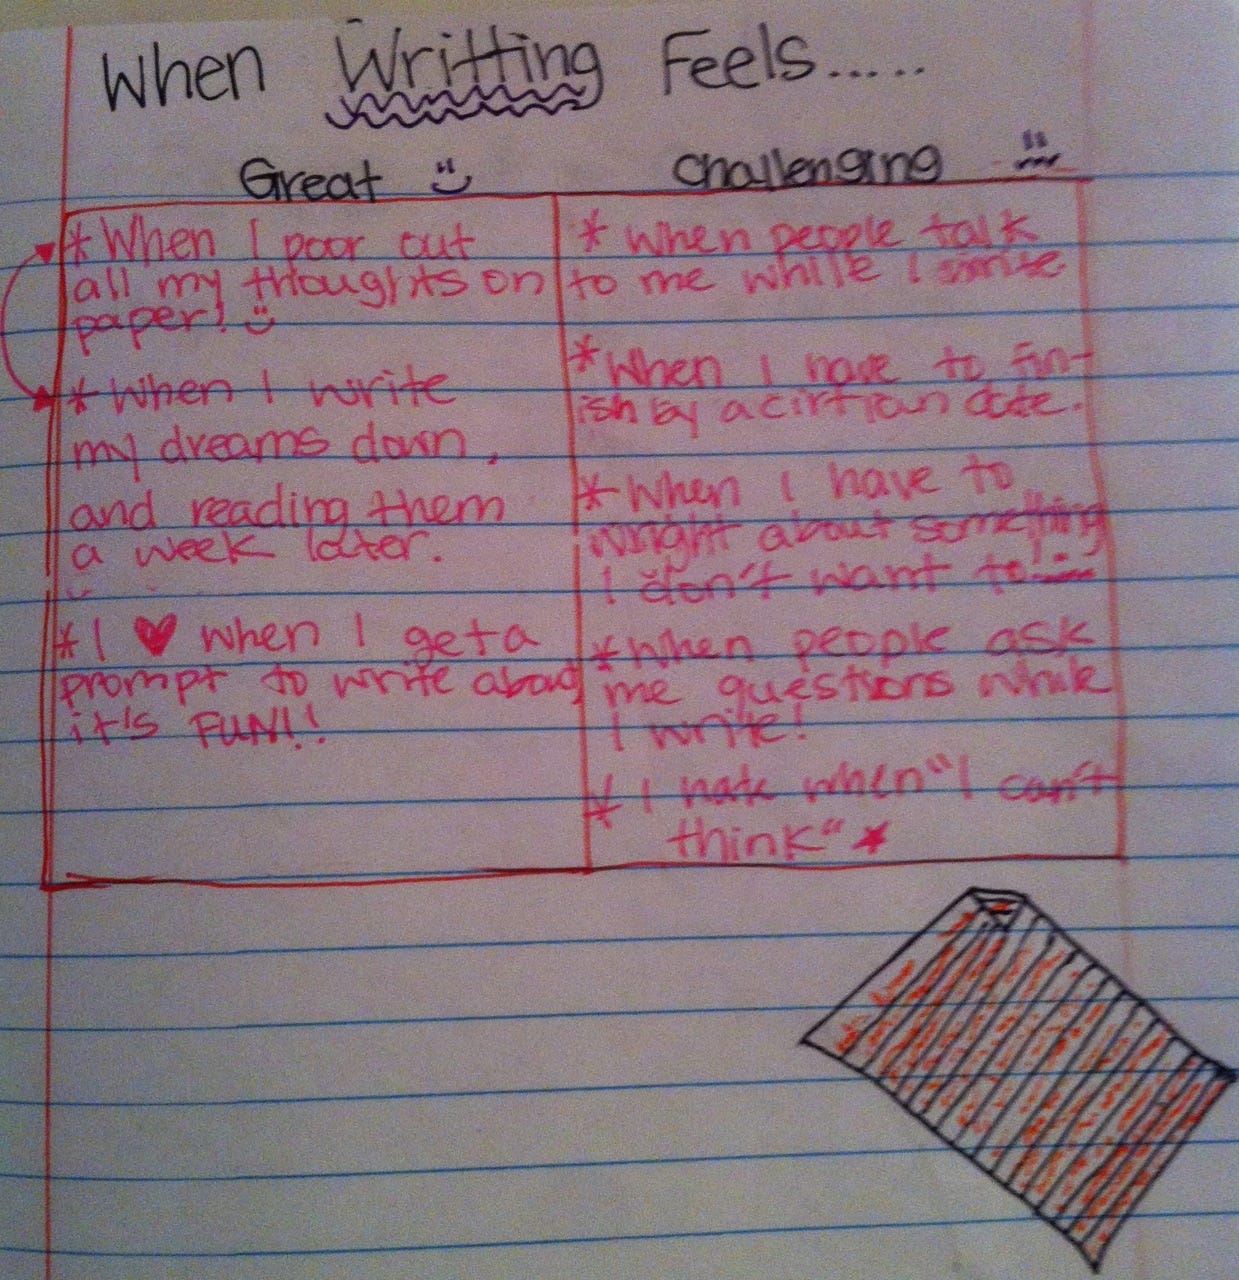 When Writting Feels.....
Great
Challenging
*When I poor out
all my thtoughts on
paper!
*When I write
my dreams down,
and reading them
a week later.
*I ♥ when I get a
prompt to write about
it's FUN!!
* When people talk
to me while I write
*When I have to fin-
ish by a cirtian date.
*When I have to
wright about something
I don't want to!
*When people ask
me questions while
I write!
* I hate when "I can't
think" *